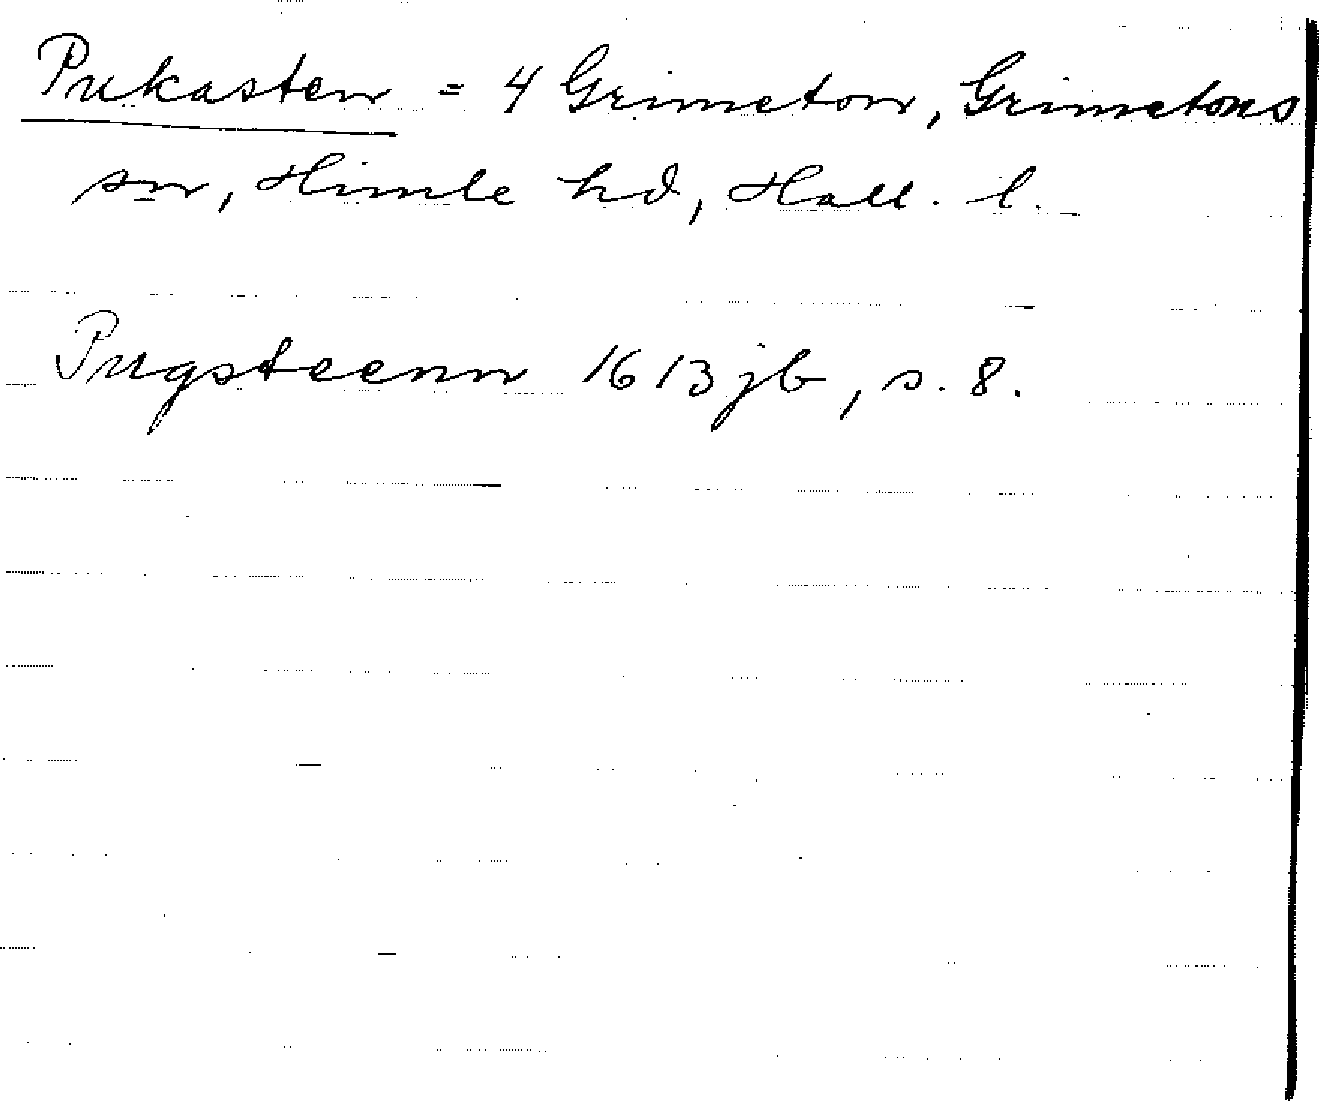 Pukasten = 4 Grimeton, Grimetons
sn, Himle hd, Hall. l.
Pugsteenn 1613 jb, s. 8.